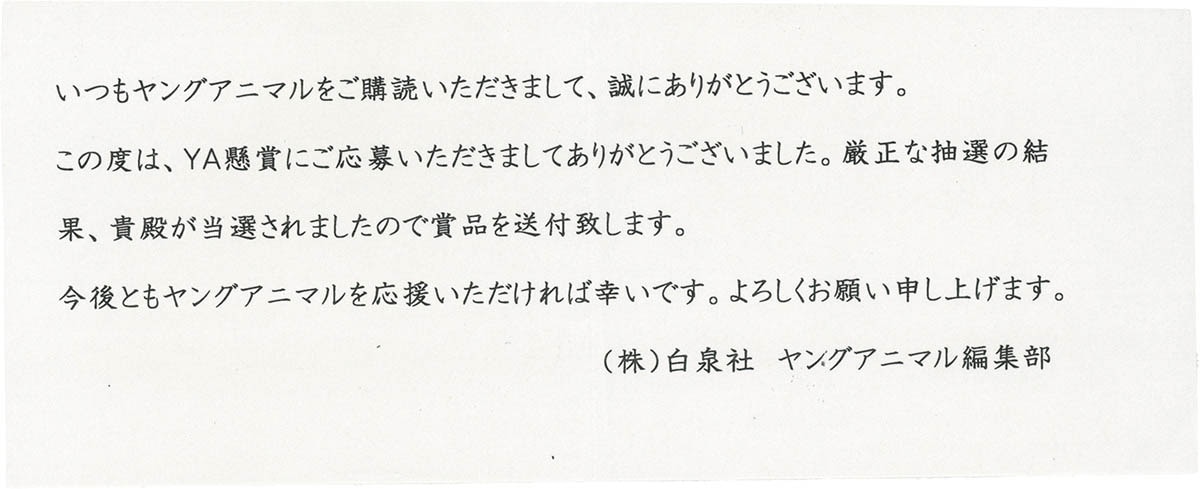 いつもヤングアニマルをご購読いただきまして、誠にありがとうございます。
この度は、YA懸賞にご応募いただきましてありがとうございました。厳正な抽選の結
果、貴殿が当選されましたので賞品を送付致します。
今後ともヤングアニマルを応援いただければ幸いです。よろしくお願い申し上げます。
（株）白泉社　ヤングアニマル編集部